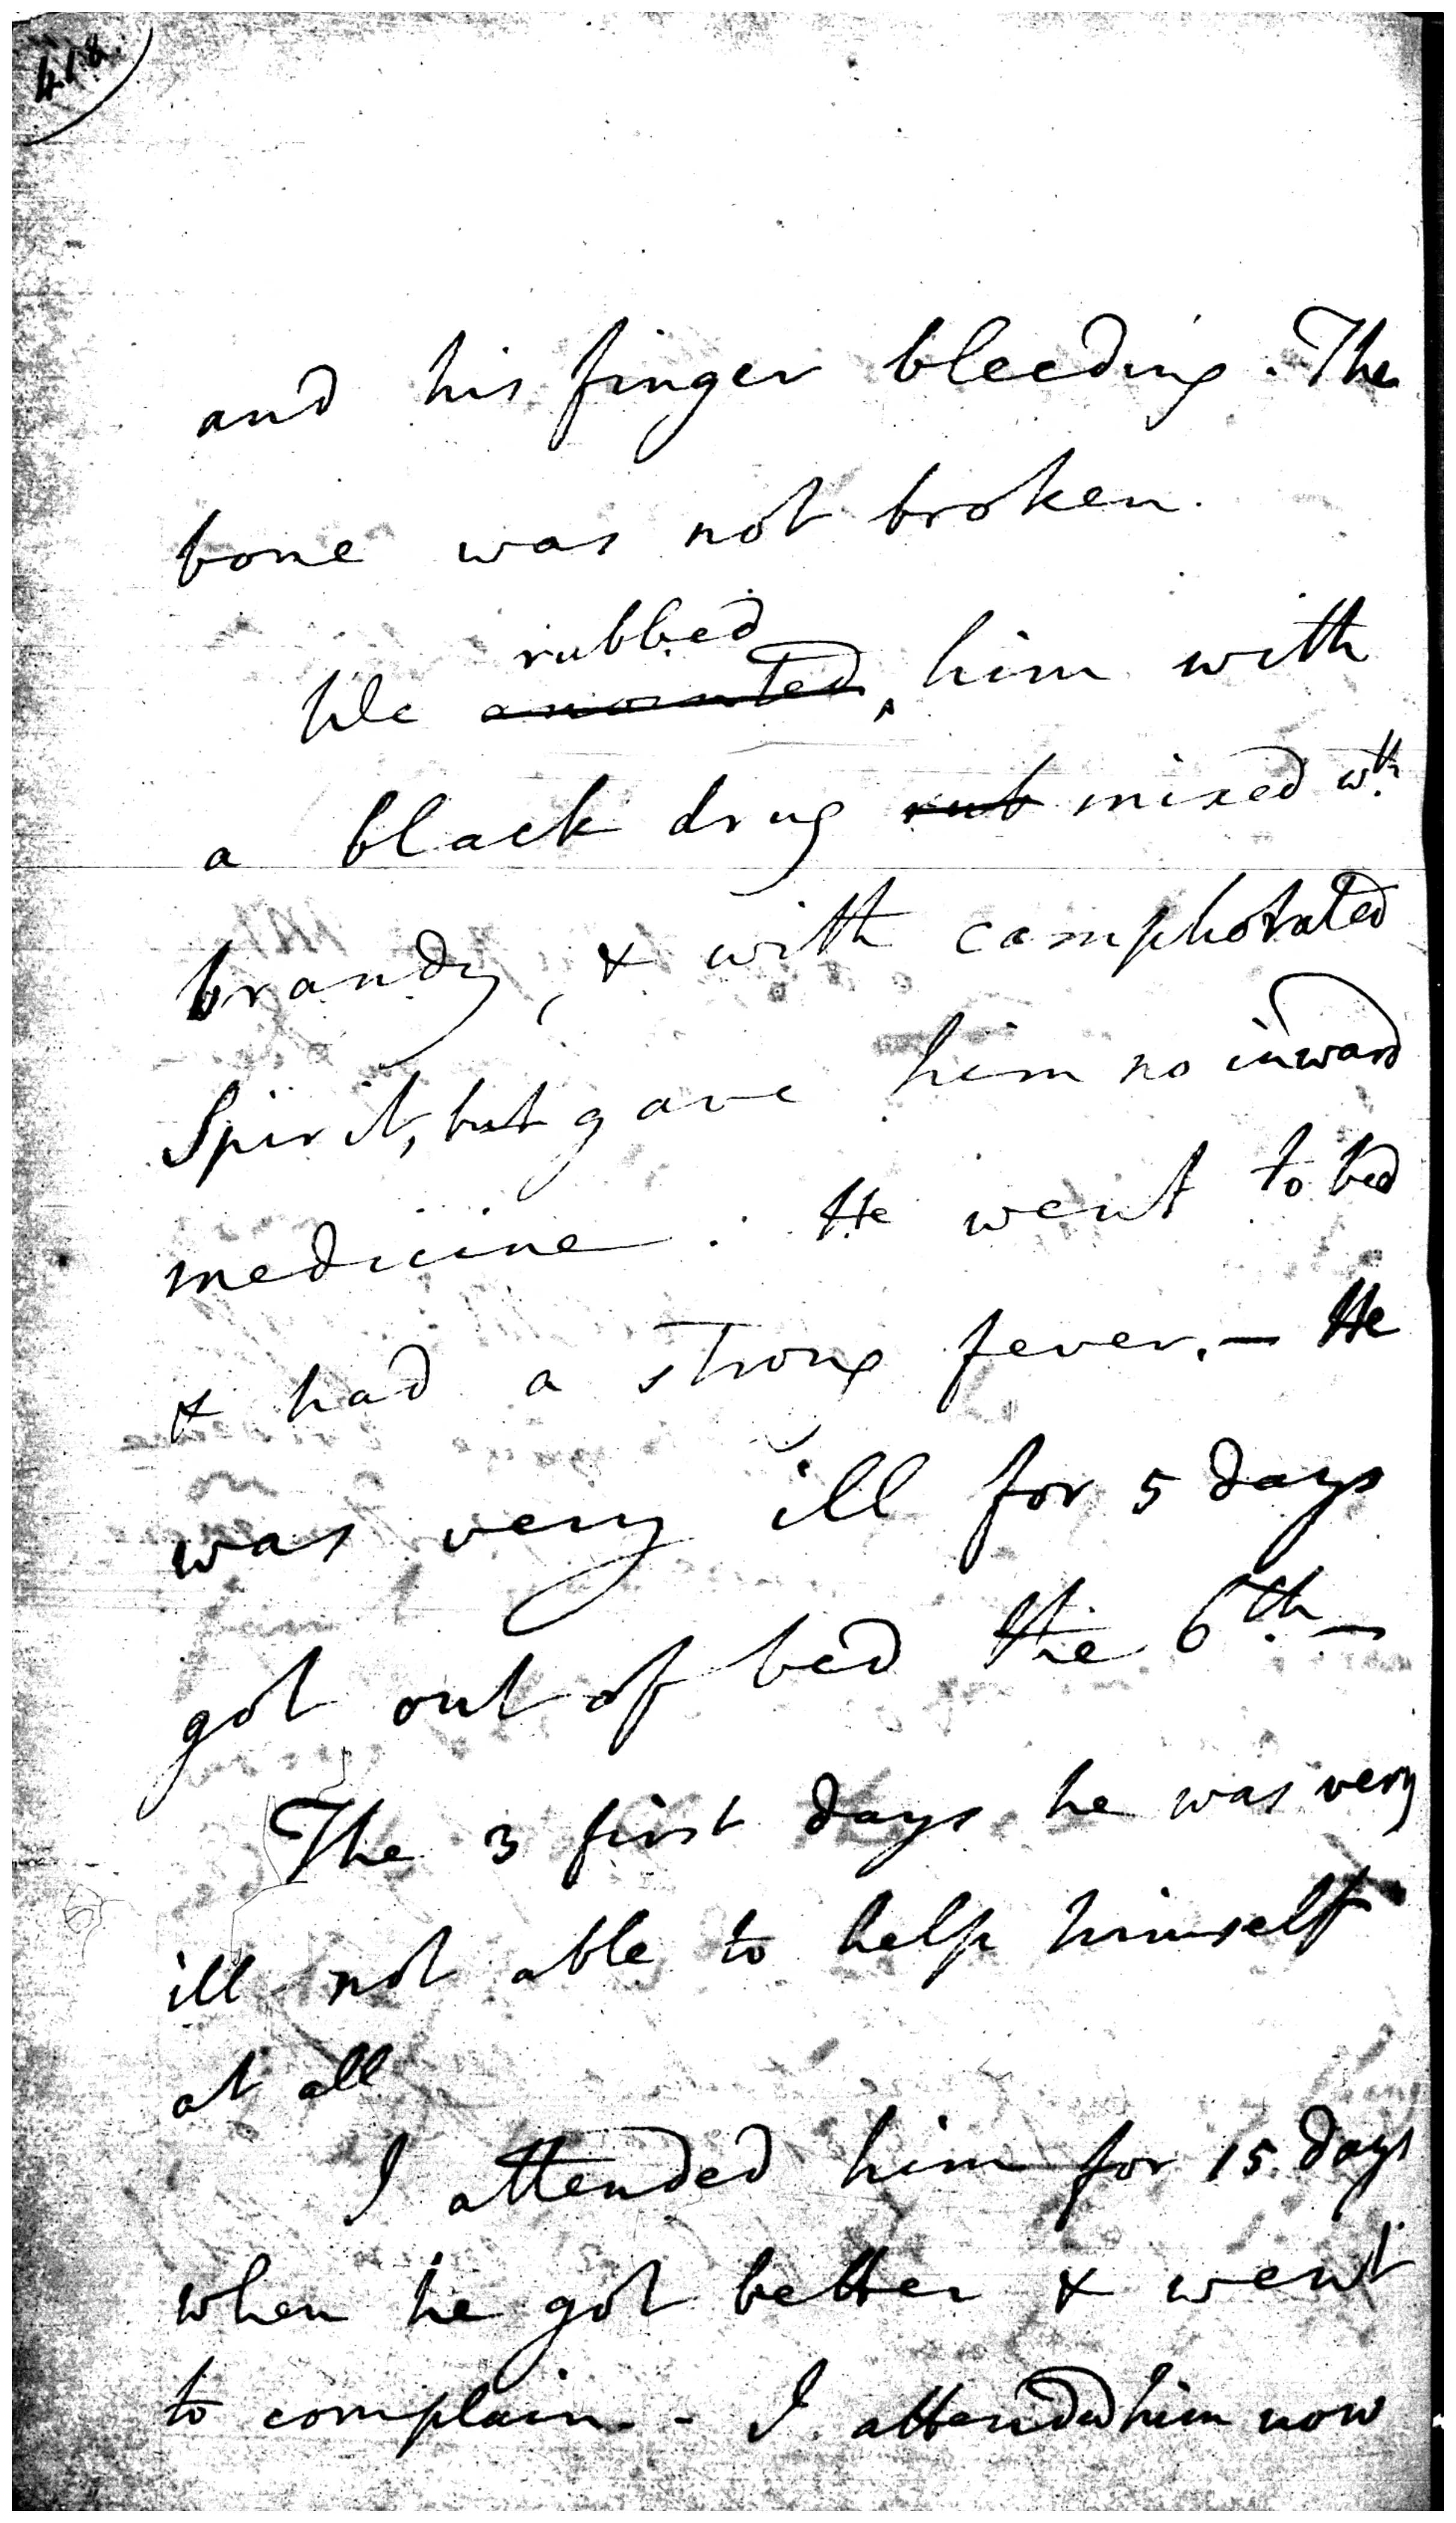 418.
and his finger bleeding. The
bone was not broken.
rubbed
We anointed ‸ him with
a black drug rub mixed wth
brandy, & with camphorated
Spirit, but gave him no inward
medicine. He went to bed
& had a strong fever. — He
was very ill for 5 days
got out of bed the 6th —
The 3 first days he was very
ill not able to help himself
at all
I attended him for 15 days
when he got better & went
to complain. - I attended him now